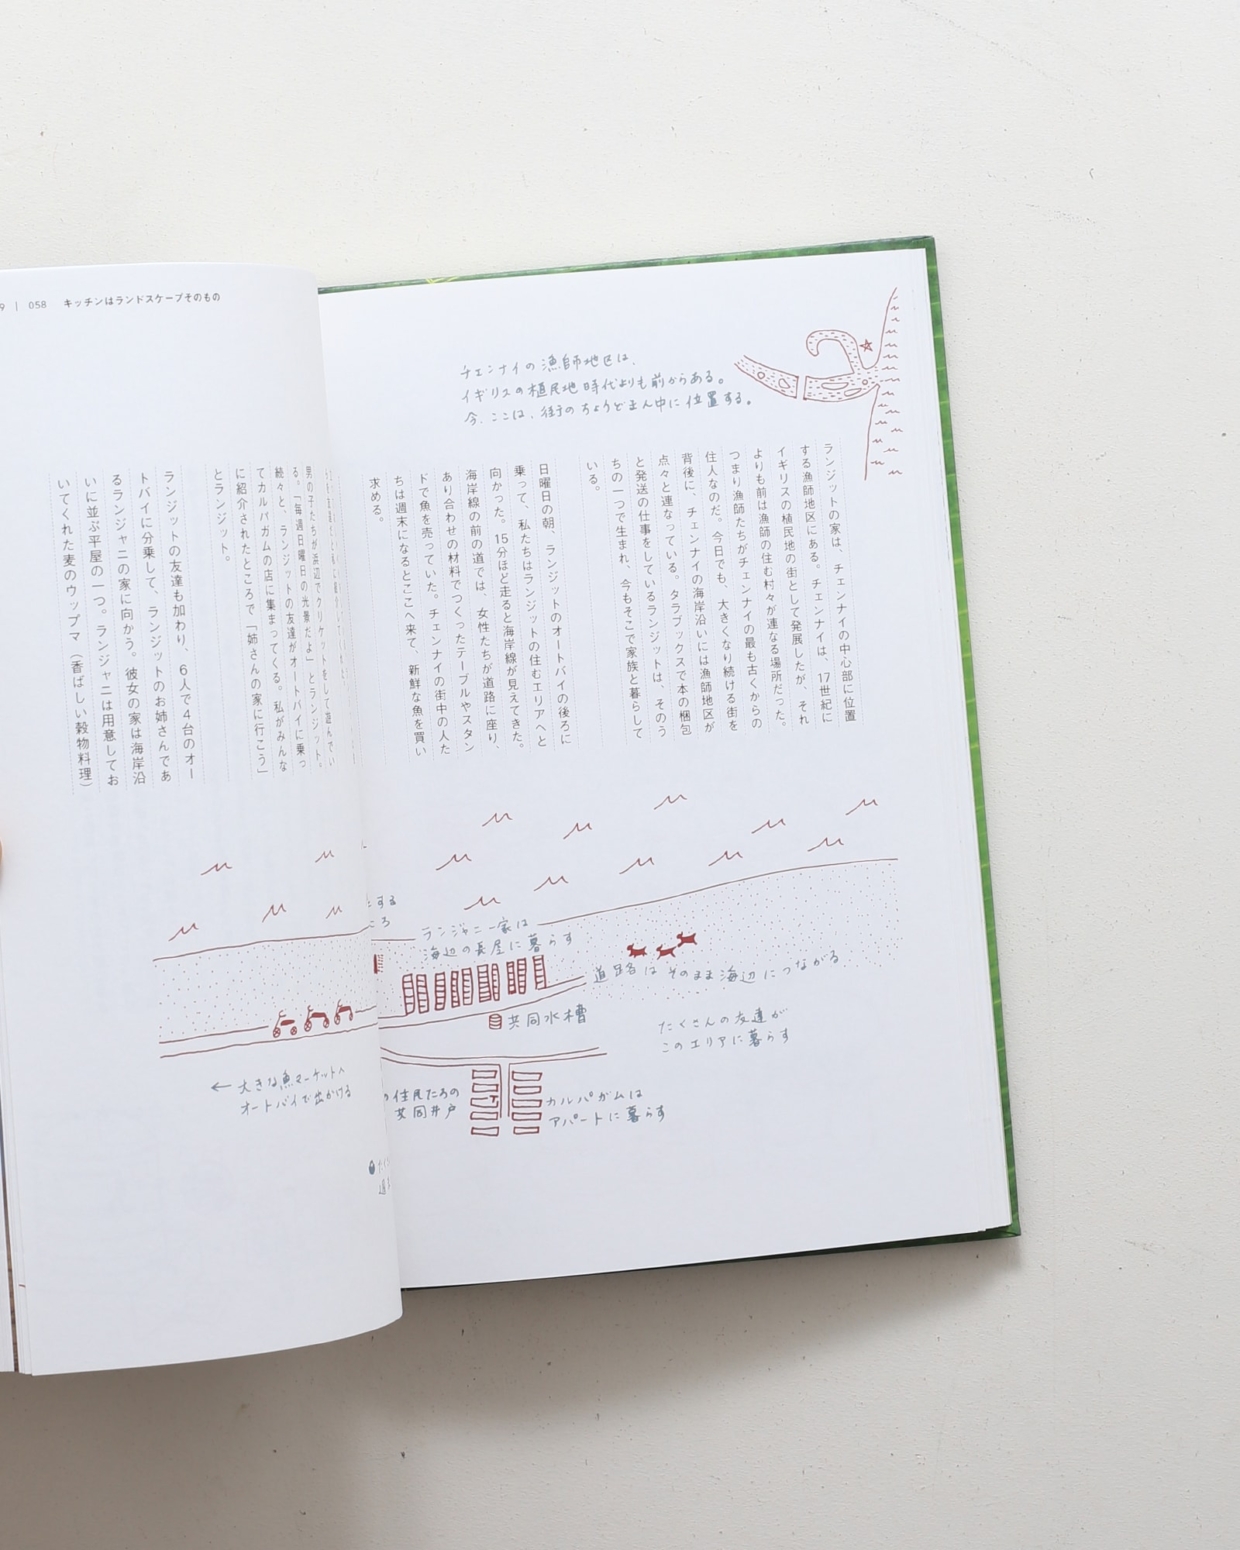 058 キッチンはランドスケープそのもの
チェンナイの漁師地区は、
イギリスの植民地時代よりも前からある。
今、ここは、街のちょうどまん中に位置する。
ランジットの家は、チェンナイの中心部に位置
する漁師地区にある。チェンナイは、17世紀に
イギリスの植民地の街として発展したが、それ
よりも前は漁師の住む村々が連なる場所だった。
つまり漁師たちがチェンナイの最も古くからの
住人なのだ。今日でも、大きくなり続ける街を
背後に、チェンナイの海岸沿いには漁師地区が
点々と連なっている。タラブックスで本の梱包
と発送の仕事をしているランジットは、そのう
ちの一つで生まれ、今もそこで家族と暮らして
いる。
日曜日の朝、ランジットのオートバイの後ろに
乗って、私たちはランジットの住むエリアへと
向かった。15分ほど走ると海岸線が見えてきた。
海岸線の前の道では、女性たちが道路に座り、
あり合わせの材料でつくったテーブルやスタン
ドで魚を売っていた。チェンナイの街中の人た
ちは週末になるとここへ来て、新鮮な魚を買い
求める。
男の子たちが浜辺でクリケットをして遊んでい
る。「毎週日曜日の光景だよ」とランジット。
続々と、ランジットの友達がオートバイに乗っ
てカルパガムの店に集まってくる。私がみんな
に紹介されたところで「姉さんの家に行こう」
とランジット。
ランジットの友達も加わり、6人で4台のオー
トバイに分乗して、ランジットのお姉さんであ
るランジャニの家に向かう。彼女の家は海岸沿
いに並ぶ平屋の一つ。ランジャニは用意してお
いてくれた麦のウップマ（香ばしい穀物料理）
する
ころ
ランジャニ一家は
海辺の長屋に暮らす
道路はそのまま海辺につながる
共同水槽
たくさんの友達が
このエリアに暮らす
← 大きな魚マーケットへ
オートバイで出かける
の住民たちの
共同井戸
カルパガムは
アパートに暮らす